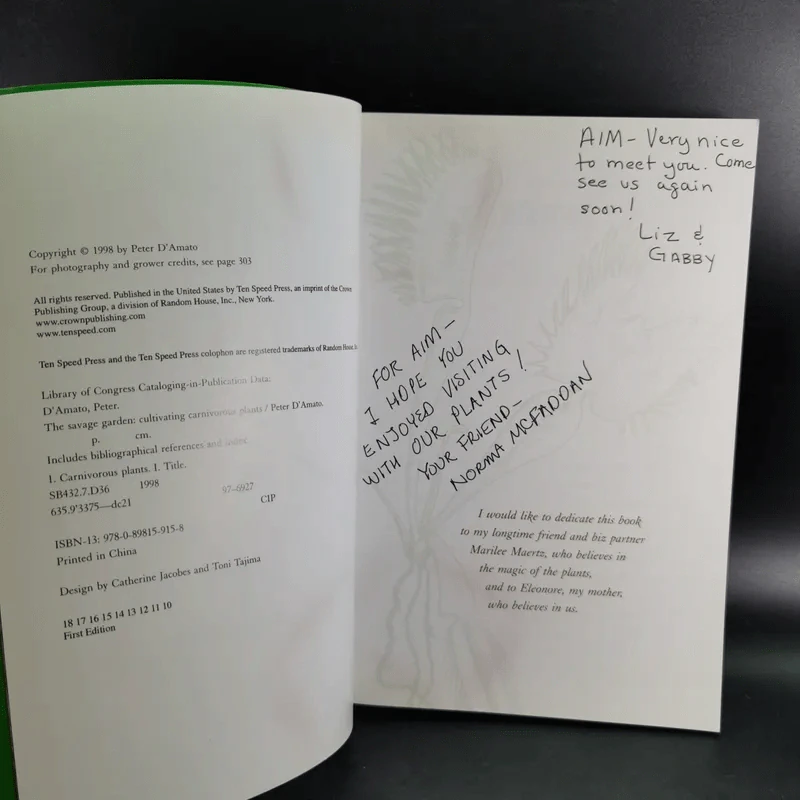 Copyright © 1998 by Peter D'Amato
For photography and grower credits, see page 303
All rights reserved. Published in the United States by Ten Speed Press, an imprint of the Crown
Publishing Group, a division of Random House, Inc., New York.
www.crownpublishing.com
www.tenspeed.com
Ten Speed Press and the Ten Speed Press colophon are registered trademarks of Random House,
Library of Congress Cataloging-in-Publication Data:
D'Amato, Peter.
The savage garden: cultivating carnivorous plants / Peter D'Amato.
p. cm.
Includes bibliographical references and index.
1. Carnivorous plants. I. Title.
SB432.7.D36 1998
635.9'3375—dc21 97-6927
CIP
ISBN-13: 978-0-89815-915-8
Printed in China
Design by Catherine Jacobes and Toni Tajima
18 17 16 15 14 13 12 11 10
First Edition
AIM – Very nice
to meet you. Come
see us again
soon!
Liz &
GABBY
FOR AIM –
I HOPE YOU
ENJOYED VISITING
WITH OUR PLANTS!
YOUR FRIEND –
NORMA MCFADDAN
I would like to dedicate this book
to my longtime friend and biz partner
Marilee Maertz, who believes in
the magic of the plants,
and to Eleonore, my mother,
who believes in us.